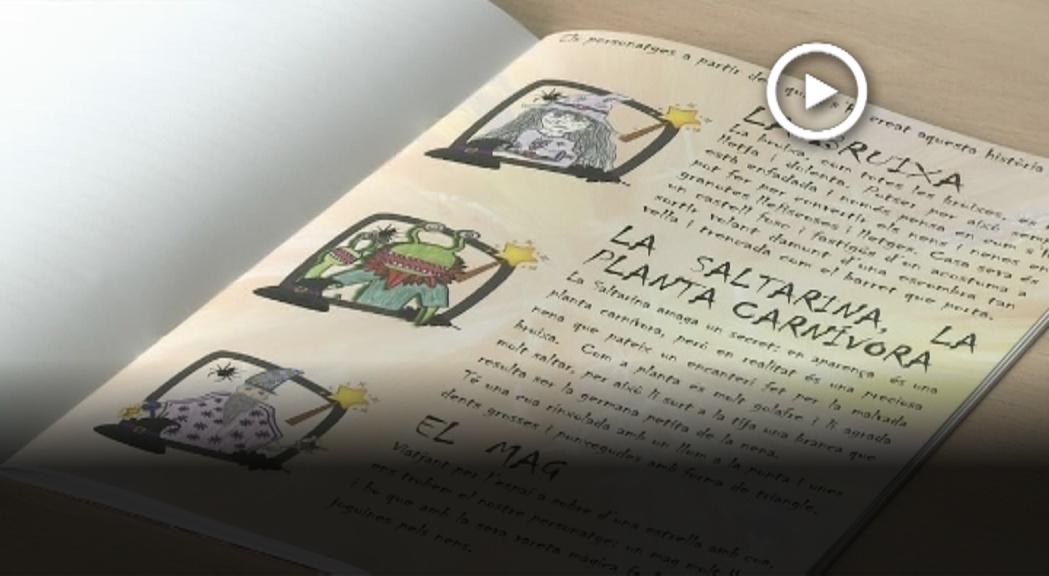 Els personatges a partir dels quals s'ha creat aquesta història
LA BRUIXA
La bruixa, com totes les bruixes, és
lletja i dolenta. Potser per això sempre
està enfadada i només pensa en com s'ho
pot fer per convertir els nens i nenes en
granotes llefiscoses i lletges. Casa seva és
un castell fosc i fastigós d'on acostuma a
sortir volant damunt d'una escombra tan
vella i trencada com el barret que porta.
LA SALTARINA, LA
PLANTA CARNÍVORA
La Saltarina amaga un secret: en aparença és una
planta carnívora, però en realitat és una preciosa
nena que pateix un encanteri fet per la malvada
bruixa. Com a planta es molt golafre i li agrada
molt saltar, per això li surt a la tifa una branca que
resulta ser la germana petita de la nena.
Té una cua rinxolada amb un llum a la punta i unes
dents grosses i punxegudes amb forma de triangle.
EL MAG
Viatjant per l'espai a sobre d'una estrella amb cua,
ens trobem el nostre personatge: un mag molt
i bo que amb la seva vareta màgica fa
joguines pels nens.